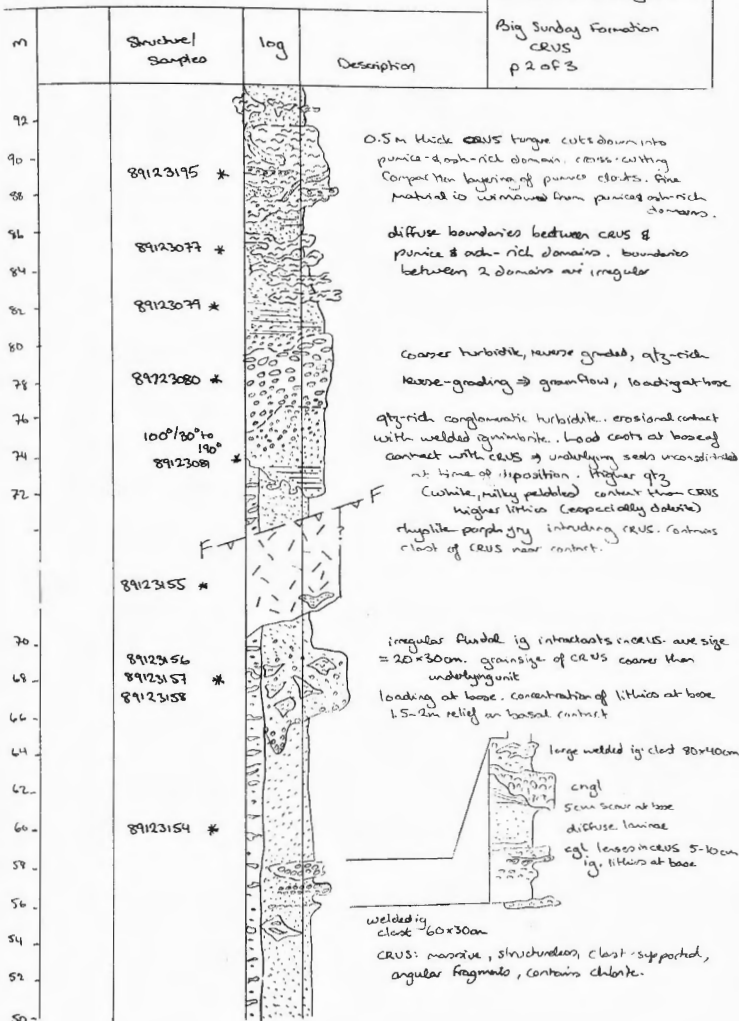 Big Sunday Formation
CRUS
p 2 of 3
m
Structure/
Samples
log
Description
92
90
88
86
84
82
80
78
76
74
72
70
68
66
64
62
60
58
56
54
52
50
89123195 *
89123077 *
89123079 *
89123080 *
100°/30° to
190°
89123081 *
89123155 *
89123156
89123157 *
89123158
89123154 *
F
F
?
0.5m thick CRUS tongue cuts down into
pumice-&ash-rich domain. cross-cutting
compaction layering of pumice clasts. fine
material is winnowed from pumice&ash-rich
domains.
diffuse boundaries between CRUS &
pumice & ash-rich domains. boundaries
between 2 domains are irregular
coarser turbidite, reverse graded, qtz-rich
reverse-grading ⇒ grainflow, loading at base
qtz-rich conglomeratic turbidite. erosional contact
with welded ignimbrite. Load casts at base of
contact with CRUS ⇒ underlying seds unconsolidated
at time of deposition. Higher qtz
(white, milky pebbles) content than CRUS
higher lithics (especially dolerite)
rhyolite porphyry intruding CRUS. Contains
clast of CRUS near contact.
irregular fluidal ig intraclasts in CRUS. ave size
= 20×30cm. grainsize of CRUS coarser than
underlying unit
loading at base. concentration of lithics at base
1.5-2m relief on basal contact
large welded ig. clast 80×40cm
cngl
5cm scour at base
diffuse laminae
cgl lenses in CRUS 5-10cm
ig. lithics at base
welded ig
clast 60×30cm
CRUS: massive, structureless, clast-supported,
angular fragments, contains chlorite.